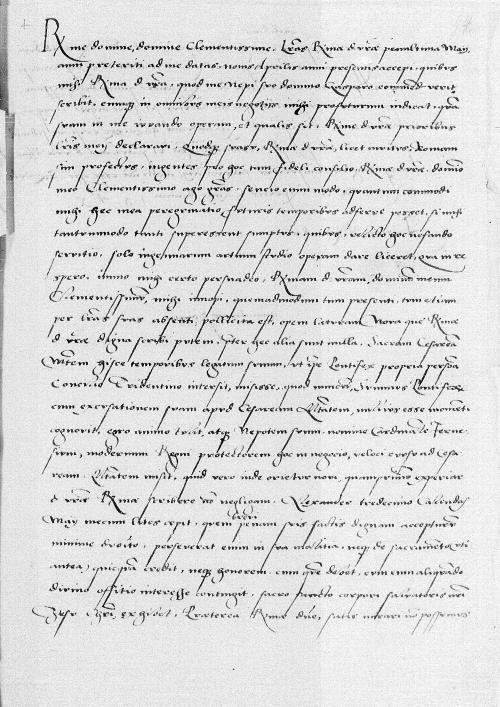 Rme domine, domine Clementissime. Lras Rme d vre penultima May
anni preteriti ad me datas, nonis Aprilis anni presentis accepi, quibus
mihi Rma d vra, quod me Nepoti suo domino Gasparo commendaverit
scribit, eumque in omnibus meis negotijs mihi profuturum indicat, quam
suam in me iuvando operam, et qualis sit, Rme d vre prioribus
lris meis declaravi. Quodque suaso, Rma d vra, licet invitus, Romam
sim profectus, ingentes pro hoc tam fideli consilio Rme d vre, domino
meo Clementissimo ago gras. sentio enim modo, quantum commodi
mihi hec mea peregrinatio futuris temporibus adferre posset, si mihi
tantummodo tanti superessent sumptus, quibus, relicto hoc nosando
servitio, solo ingenuarum artium studio operam dare liceret, qua in re
spero, immo mihi certo persuadeo, Rmam d vram, dominum meum
Clementissimum, mihi inopi, quemadmodum tum presenti, tum etiam
per lras suas absenti, pollicita est, opem laturam. Nova que Rme
d vre digna scribi putem, preter hec alia sunt nulla. Sacram Cesaream
Mtem hisce temporibus legatum suum, ut ipse Pontifex propria persona
Concilio Tridentino intersit, misisse, quod cum Summus Pontifex
cum excusationem suam apud Cesaream Mtatem, minus esse momenti
cognovit, egro animo tulit, atque Nepotem suum nomine Cardinalem Ferne
sium, modernum Regni protectorem hoc in negocio, veloci cursu ad Cesa
ream Mtatem misit, quid vero inde orietur novi, quamprimum experiar
d vre Rme scribere non negligam. Alexander tredecimo Calendas
May mecum lites cepit, quem brevi penam suis factis dignam accepturum
minime dubito, perseverat enim in sua malitia, neque de sacramento, uti
antea, quicquam credit, neque honorem, cum quem debet, cum eum aliquando
divino officio interesse contingit, sacro sancto corpori salvatoris nri
Jesu Christi exhibet. Preterea Rme dne, satis mirari non possumus